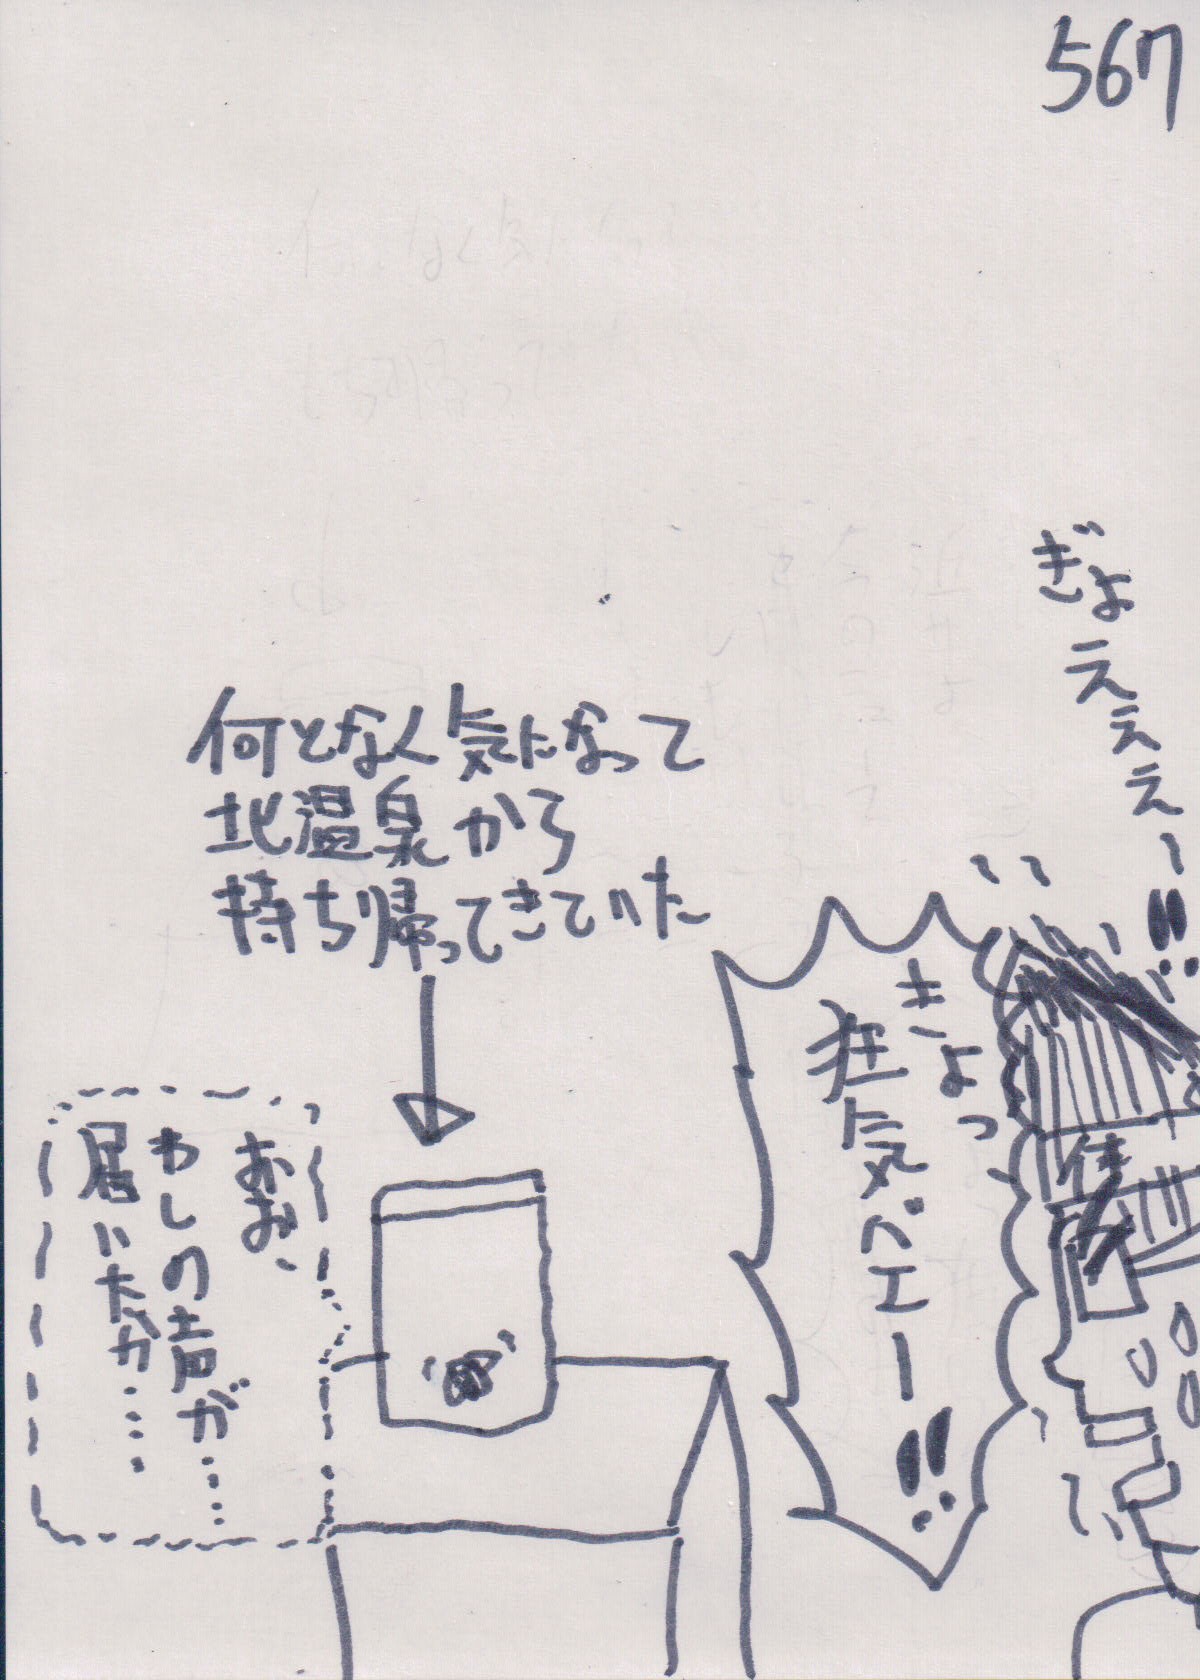 567
ぎょえええ〜!!
きょっ
狂気ベエー!!
何となく気になって
北温泉から
持ち帰ってきていた
おお、
わしの声が……
届いたか……